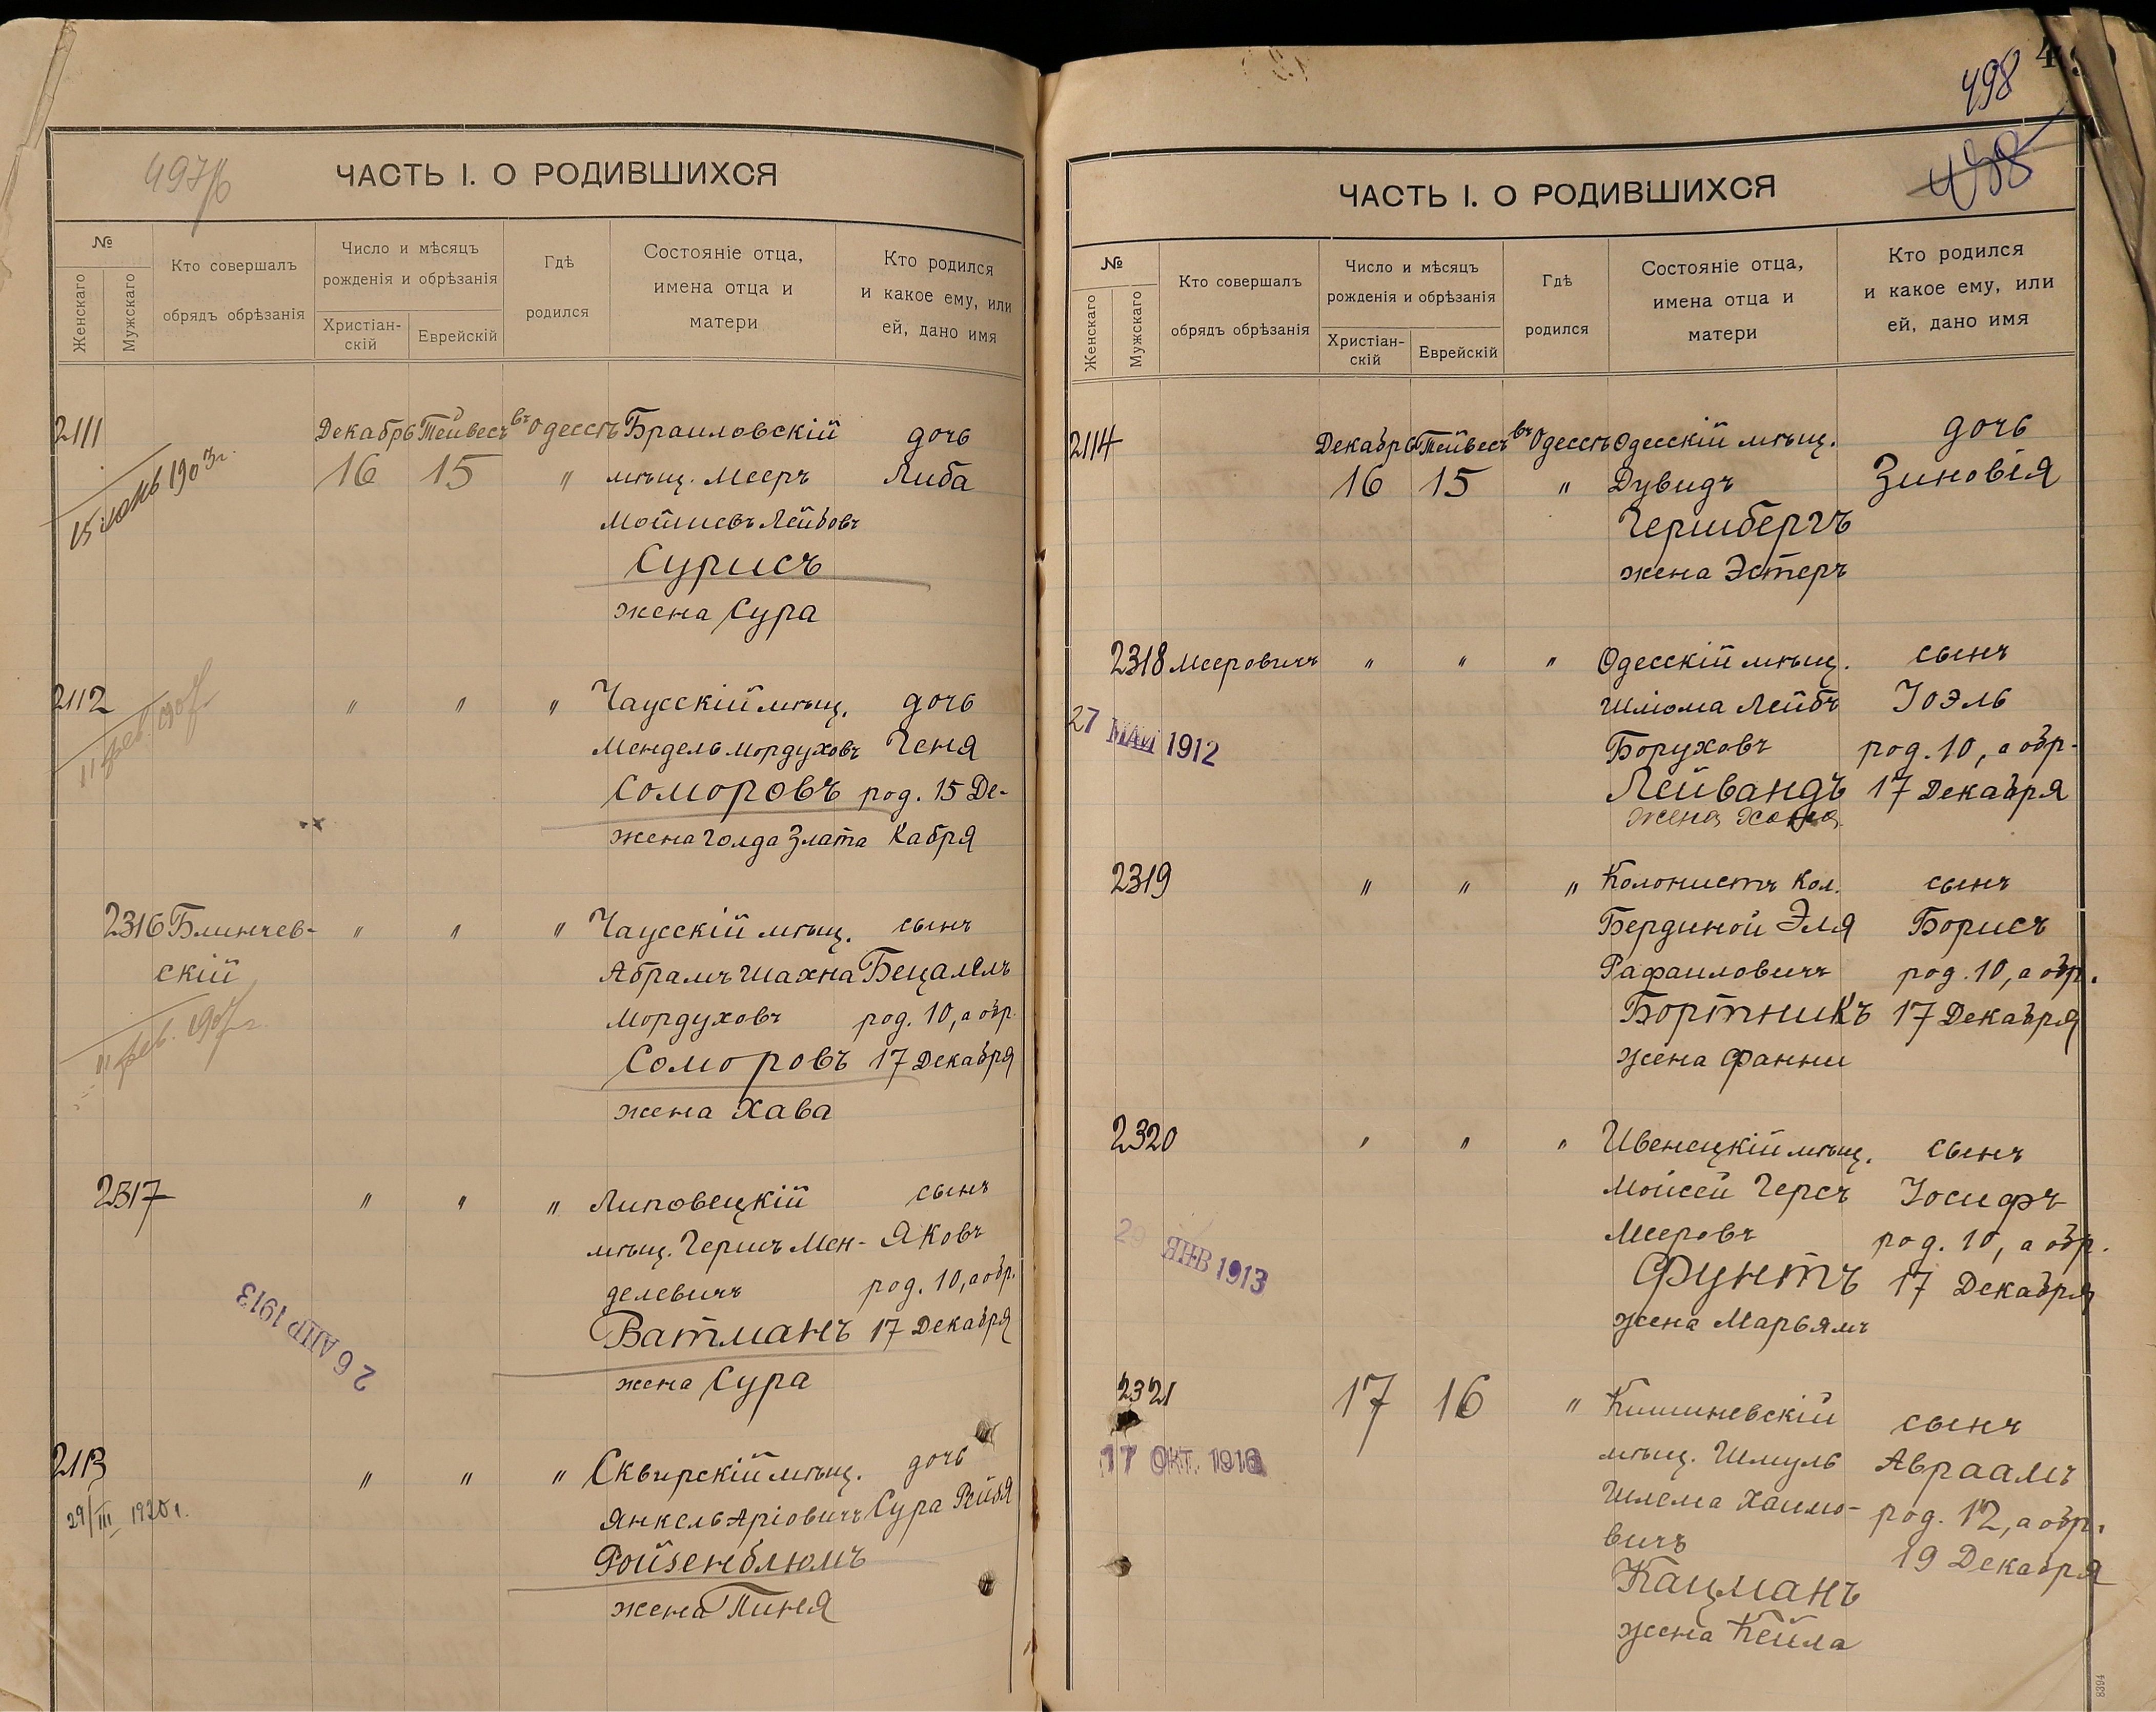 497/б
ЧАСТЬ I. О РОДИВШИХСЯ
№
Женскаго
Мужскаго
Кто совершалъ
обрядъ обрѣзанія
Число и мѣсяцъ
рожденія и обрѣзанія
Христіан-
скій
Еврейскій
Гдѣ
родился
Состояніе отца,
имена отца и
матери
Кто родился
и какое ему, или
ей, дано имя
2111 Декабрь Тейвесъ въ Одессѣ Браиловскій дочь
16 15 " мѣщ. Мееръ Либа
15 1903г.
Мошневъ Лейбовъ
Сурисъ
жена Сура
2112 " " " Чаусскій мѣщ. дочь
11 фев.
Мендель Мордуховъ Геня
Соморовъ род. 15 Де-
жена Голда Злата кабря
2316 Блинчев- " " " Чаусскій мѣщ. сынъ
скій Абрамъ Шахна Бецалелъ
11 фев. 1907г.
Мордуховъ род. 10, а обр.
Соморовъ 17 Декабря
жена Хава
2317 " " " Липовецкій сынъ
мѣщ. Гершъ Мен- Яковъ
делевичъ род. 10, а обр.
26 АПР 1913
Ватманъ 17 Декабря
жена Сура
2113 " " " Сквирскій мѣщ. дочь
29/III 1920 г. Янкель Аріовичъ Сура Рейзя
Ройзенблюмъ
жена Пиня
498
488
ЧАСТЬ I. О РОДИВШИХСЯ
№
Женскаго
Мужскаго
Кто совершалъ
обрядъ обрѣзанія
Число и мѣсяцъ
рожденія и обрѣзанія
Христіан-
скій
Еврейскій
Гдѣ
родился
Состояніе отца,
имена отца и
матери
Кто родился
и какое ему, или
ей, дано имя
2114 Декабрь Тейвесъ въ Одессѣ Одесскій мѣщ. дочь
16 15 " Дувидъ Зиновія
Гершбергъ
жена Эстеръ
2318 Мееровичъ " " " Одесскій мѣщ. сынъ
Шлёма Лейбъ Іоэль
27 МАЙ 1912
Боруховъ род. 10, а обр.
Лейвандъ 17 Декабря
жена
2319 " " " Колонистъ кол. сынъ
Бердиной Эля Борисъ
Рафаиловичъ род. 10, а обр.
Бортникъ 17 Декабря
жена Фанни
2320 " " " Ивенецкій мѣщ. сынъ
Мойсей Герсъ Іосифъ
Мееровъ род. 10, а обр.
29 ЯНВ 1913
Фунтъ 17 Декабря
жена Марьямъ
2321 17 16 " Кишиневскій сынъ
17 ОКТ.
мѣщ. Шмуль Авраамъ
Шлема Хаимо- род. 12, а обр.
вичъ 19 Декабря
Кацманъ
жена Кейла
8394